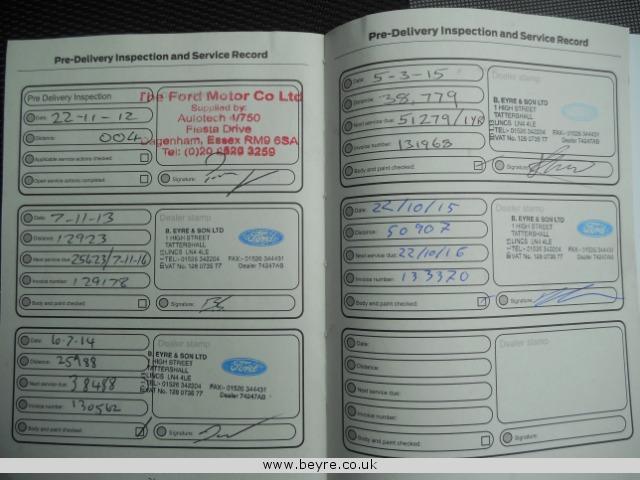 Pre-Delivery Inspection and Service Record
Pre Delivery Inspection
Date: 22-11-12
Distance: 004
Applicable service actions checked:
Open service actions completed:
The Ford Motor Co Ltd
Supplied by:
Autotech 4/750
Fiesta Drive
Dagenham, Essex RM9 6SA
Tel: (0)20 8526 3259
Signature:
Date: 7-11-13
Distance: 12923
Next service due: 25623/7-11-16
Invoice number: 129178
Body and paint checked:
Dealer stamp
B. EYRE & SON LTD
1 HIGH STREET
TATTERSHALL
LINCS LN4 4LE
TEL:- 01526 342204 FAX:- 01526 344431
VAT No. 128 0735 77 Dealer 74247AB
Ford
Signature:
Date: 6-7-14
Distance: 25988
Next service due: 38488
Invoice number: 130562
Body and paint checked:
Dealer stamp
B. EYRE & SON LTD
1 HIGH STREET
TATTERSHALL
LINCS LN4 4LE
TEL:- 01526 342204 FAX:- 01526 344431
VAT No. 128 0735 77 Dealer 74247AB
Ford
Signature:
Pre-Delivery Inspection and Service Record
Date: 5-3-15
Distance: 38,779
Next service due: 51279/1YR
Invoice number: 131963
Body and paint checked:
Dealer stamp
B. EYRE & SON LTD
1 HIGH STREET
TATTERSHALL
LINCS LN4 4LE
TEL:- 01526 342204 FAX:- 01526 344431
VAT No. 128 0735 77 Dealer 74247AB
Ford
Signature:
Date: 22/10/15
Distance: 50907
Next service due: 22/10/16
Invoice number: 133370
Body and paint checked:
Dealer stamp
B. EYRE & SON LTD
1 HIGH STREET
TATTERSHALL
LINCS LN4 4LE
TEL:- 01526 342204 FAX:- 01526 344431
VAT No. 128 0735 77 Dealer 74247AB
Ford
Signature:
Date:
Distance:
Next service due:
Invoice number:
Body and paint checked:
Dealer stamp
Signature:
www.beyre.co.uk